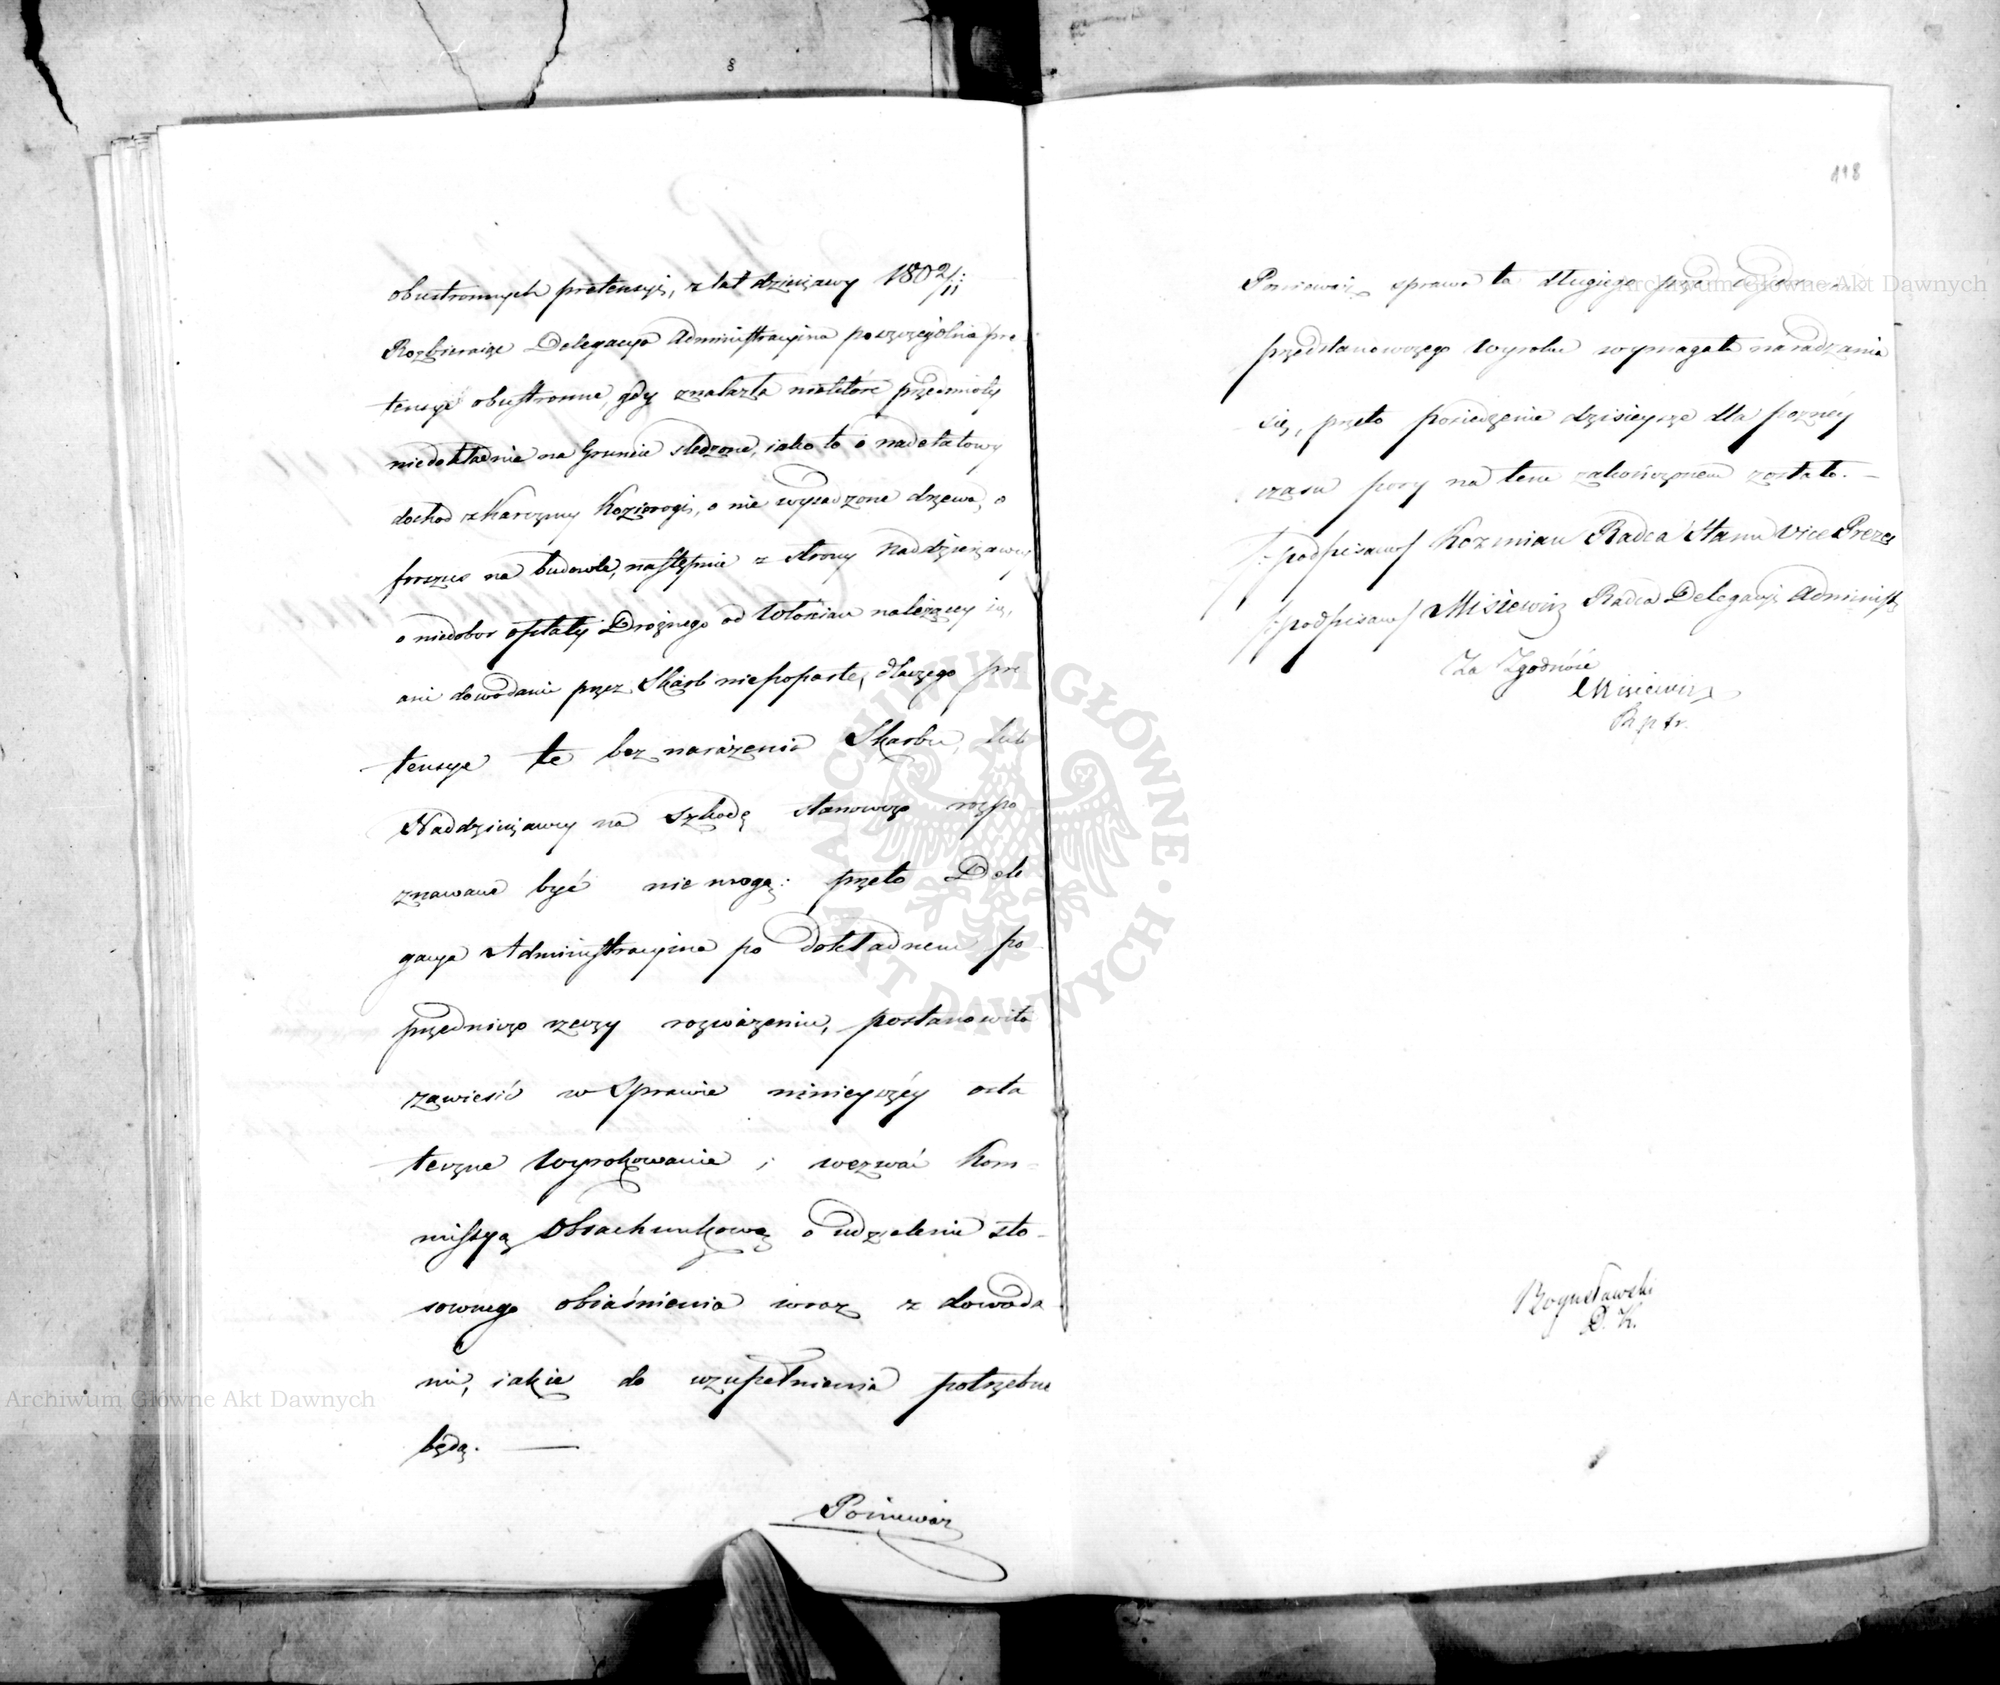 8
obustronnych pretensyi, z lat dzierżawy 180 2/11:
Rozbieraiąc Delegacya Administracyina poszczególnie pre
tensye obustronne, gdy znalazła niektóre przedmioty
niedokładnie na Gruncie śledzone, iako to o nadetatowy
dochod z karczmy Koziorogi, o nie wysadzone drzewa, o
forszus na budowle, następnie z strony Naddzierżawcy
o niedobor opłaty Drożnego od Włościan należącey się,
ani dowodami przez Skarb niepoparte, dlaczego pre
tensye te bez narażenia Skarbu, lub
Naddzierżawcy na szkodę stanowczo rozpo
znawane być nie mogą: przeto Dele
gacya Administracyina po dokładnem po
przedniczo rzeczy rozważeniu, postanowiła
zawiesić w Sprawie ninieyszéy osta
teczne wyrokowanie i wezwać Kom=
missyą Obrachunkową o udzielenie sto-
sownego obiaśnienia wraz z dowoda
mi, iakie do uzupełnienia potrzebne
będą. —
Poniewaz
118
Ponieważ sprawa ta długiego przed wydaniem
przedstanowczego wyroku wymagała naradzania
się, przeto posiedzenie dzisieysze dla pozney
czasu pory na tem zakończonem zostało. —
/:podpisano/ Kozmian Radca Stanu Vice Prezes
/:podpisano/ Misiewicz Radca Delegacyi Administr
Za Zgodność
Misiewicz
Rptr.
Bogusławski
D. K.
Archiwum Główne Akt Dawnych
Archiwum Główne Akt Dawnych
ARCHIWUM GŁÓWNE AKT DAWNYCH